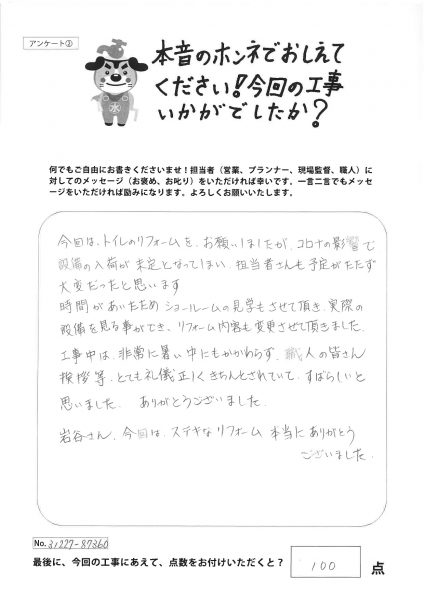 アンケート③
本音のホンネでおしえて
ください!今回の工事
いかがでしたか?
水
何でもご自由にお書きくださいませ!担当者(営業、プランナー、現場監督、職人)に
対してのメッセージ(お褒め、お叱り)をいただければ幸いです。一言二言でもメッセ
ージをいただければ励みになります。よろしくお願いいたします。
今回は、トイレのリフォームを、お願いしましたが、コロナの影響で
設備の入荷が未定となってしまい、担当者さんも予定がたたず
大変だったと思います
時間があいたため ショールームの見学もさせて頂き、実際の
設備を見る事ができ、リフォーム内容も変更させて頂きました。
工事中は、非常に暑い中にもかかわらず、職人の皆さん
挨拶等、とても礼儀正しくきちんとされていて、すばらしいと
思いました。 ありがとうございました。
岩谷さん、今回は、ステキなリフォーム 本当にありがとう
ございました。
No. 31227-87360
最後に、今回の工事にあえて、点数をお付けいただくと? 100 点